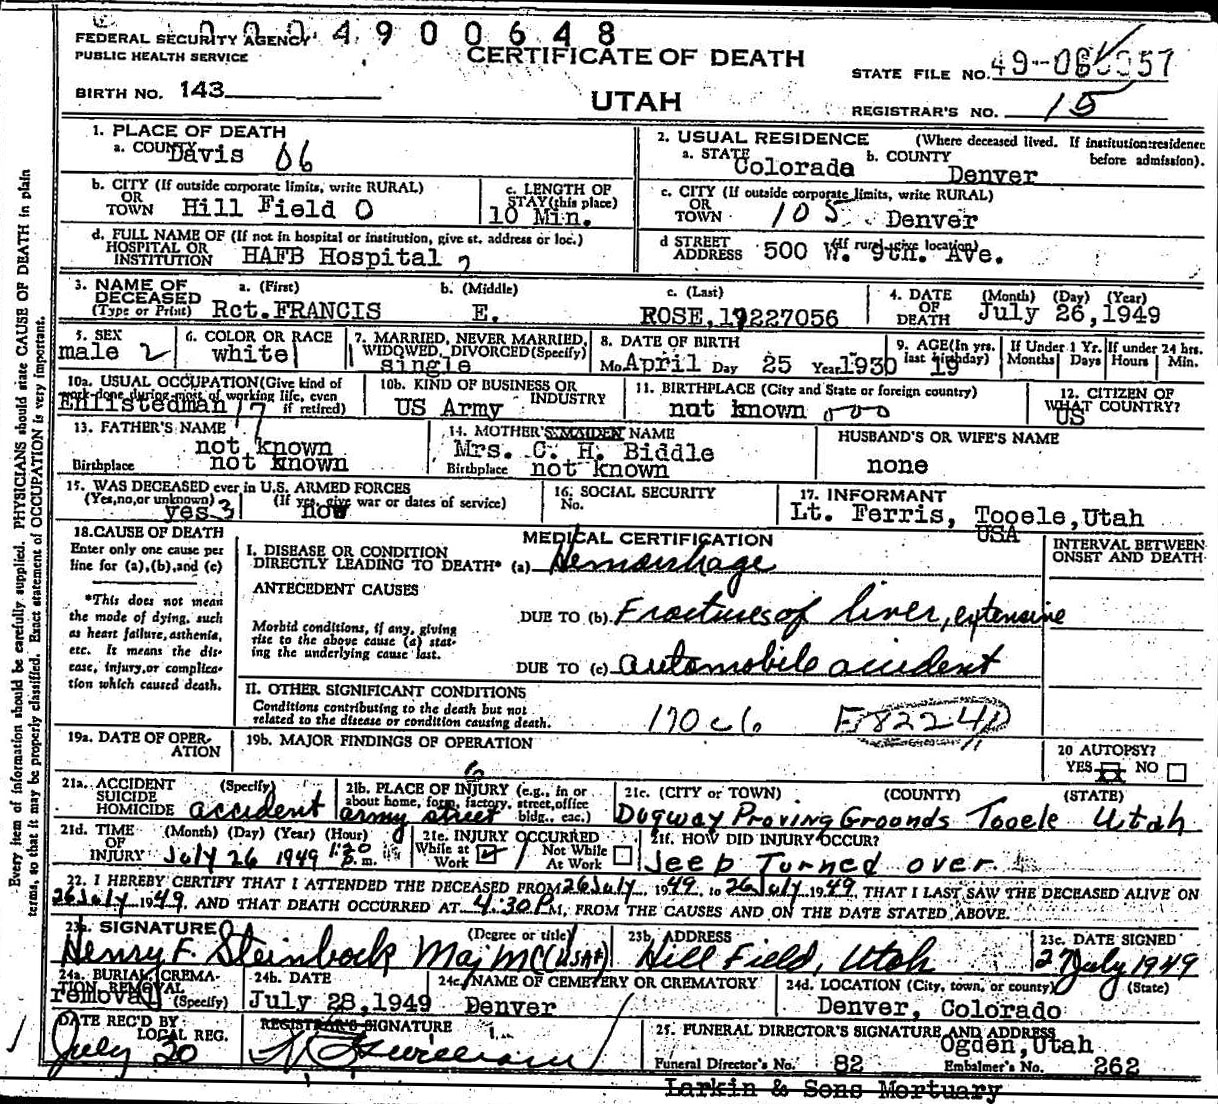 0004900648
FEDERAL SECURITY AGENCY
PUBLIC HEALTH SERVICE
CERTIFICATE OF DEATH
STATE FILE NO. 49-
BIRTH NO. 143
UTAH
REGISTRAR'S NO. 15
1. PLACE OF DEATH
a. COUNTY Davis 06
2. USUAL RESIDENCE (Where deceased lived. If institution: residence before admission).
a. STATE Colorado b. COUNTY Denver
b. CITY (If outside corporate limits, write RURAL)
OR TOWN Hill Field 0
c. LENGTH OF STAY (this place)
10 Min.
c. CITY (If outside corporate limits, write RURAL)
OR TOWN 105 Denver
d. FULL NAME OF (If not in hospital or institution, give st. address or loc.)
HOSPITAL OR INSTITUTION HAFB Hospital
d STREET ADDRESS (If rural give location)
500 W. 9th. Ave.
3. NAME OF DECEASED (Type or Print)
a. (First) b. (Middle) c. (Last)
Rct. FRANCIS E. ROSE, 19227056
4. DATE OF DEATH (Month) (Day) (Year)
July 26, 1949
5. SEX
male 2
6. COLOR OR RACE
white 1
7. MARRIED, NEVER MARRIED, WIDOWED, DIVORCED (Specify)
single
8. DATE OF BIRTH
Mo. April Day 25 Year 1930
9. AGE (In yrs. last birthday)
19
If Under 1 Yr. Months Days
If under 24 hrs. Hours Min.
10a. USUAL OCCUPATION (Give kind of work done during most of working life, even if retired)
Enlistedman
10b. KIND OF BUSINESS OR INDUSTRY
US Army
11. BIRTHPLACE (City and State or foreign country)
not known 000
12. CITIZEN OF WHAT COUNTRY?
US
13. FATHER'S NAME
not known
Birthplace not known
14. MOTHER'S MAIDEN NAME
Mrs. C. H. Biddle
Birthplace not known
HUSBAND'S OR WIFE'S NAME
none
15. WAS DECEASED ever in U.S. ARMED FORCES
(Yes, no, or unknown) (If yes, give war or dates of service)
yes 3 now
16. SOCIAL SECURITY
No.
17. INFORMANT
Lt. Ferris, Tooele, Utah
USA
18. CAUSE OF DEATH
Enter only one cause per line for (a), (b), and (c)
*This does not mean the mode of dying, such as heart failure, asthenia, etc. It means the disease, injury, or complication which caused death.
MEDICAL CERTIFICATION
INTERVAL BETWEEN ONSET AND DEATH
I. DISEASE OR CONDITION DIRECTLY LEADING TO DEATH* (a) Hemorrhage
ANTECEDENT CAUSES
DUE TO (b) Fractures of liver, extensive
Morbid conditions, if any, giving rise to the above cause (a) stating the underlying cause last.
DUE TO (c) automobile accident
II. OTHER SIGNIFICANT CONDITIONS
Conditions contributing to the death but not related to the disease or condition causing death.
170 c 6
19a. DATE OF OPERATION
19b. MAJOR FINDINGS OF OPERATION
20 AUTOPSY?
YES NO
21a. ACCIDENT SUICIDE HOMICIDE (Specify)
accident
21b. PLACE OF INJURY (e.g., in or about home, farm, factory, street, office bldg., eac.)
army street
21c. (CITY or TOWN) (COUNTY) (STATE)
Dugway Proving Grounds Tooele Utah
21d. TIME OF INJURY (Month) (Day) (Year) (Hour)
July 26 1949 m.
21e. INJURY OCCURRED
While at Work Not While At Work
21f. HOW DID INJURY OCCUR?
Jeep Turned over
22. I HEREBY CERTIFY THAT I ATTENDED THE DECEASED FROM 26 July, 1949, TO 26 July 1949, THAT I LAST SAW THE DECEASED ALIVE ON
26 July 1949, AND THAT DEATH OCCURRED AT 4:30 P.M, FROM THE CAUSES AND ON THE DATE STATED ABOVE.
SIGNATURE (Degree or title)
Henry F. Steinbock Maj MC (USAF)
23b. ADDRESS
Hill Field, Utah
23c. DATE SIGNED
27 July 1949
24a. BURIAL, CREMATION, REMOVAL (Specify)
removal
24b. DATE
July 28, 1949
24c. NAME OF CEMETERY OR CREMATORY
Denver
24d. LOCATION (City, town, or county) (State)
Denver, Colorado
DATE REC'D BY LOCAL REG.
July 20
REGISTRAR'S SIGNATURE
25. FUNERAL DIRECTOR'S SIGNATURE AND ADDRESS
Ogden, Utah
Funeral Director's No. 82 Embalmer's No. 262
Larkin & Sons Mortuary
Every item of information should be carefully supplied. PHYSICIANS should state CAUSE OF DEATH in plain
terms, so that it may be properly classified. Exact statement of OCCUPATION is very important.